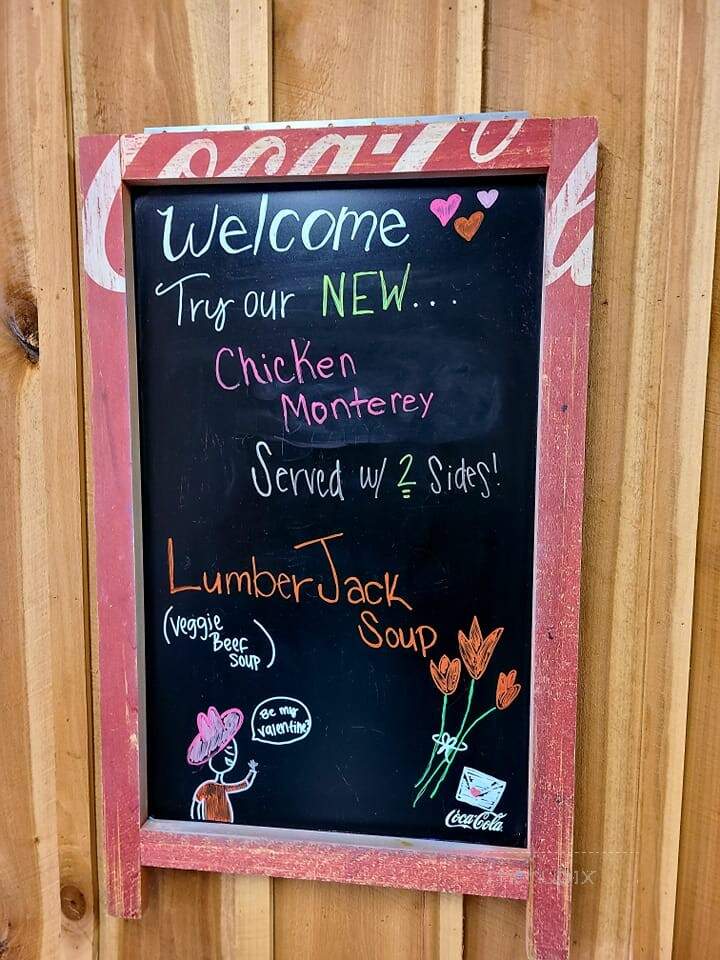 Coca-C
Welcome
Try our NEW...
Chicken
Monterey
Served w/ 2 Sides!
LumberJack
Soup
(Veggie
Beef
Soup)
Be my
valentine?
Coca-Cola